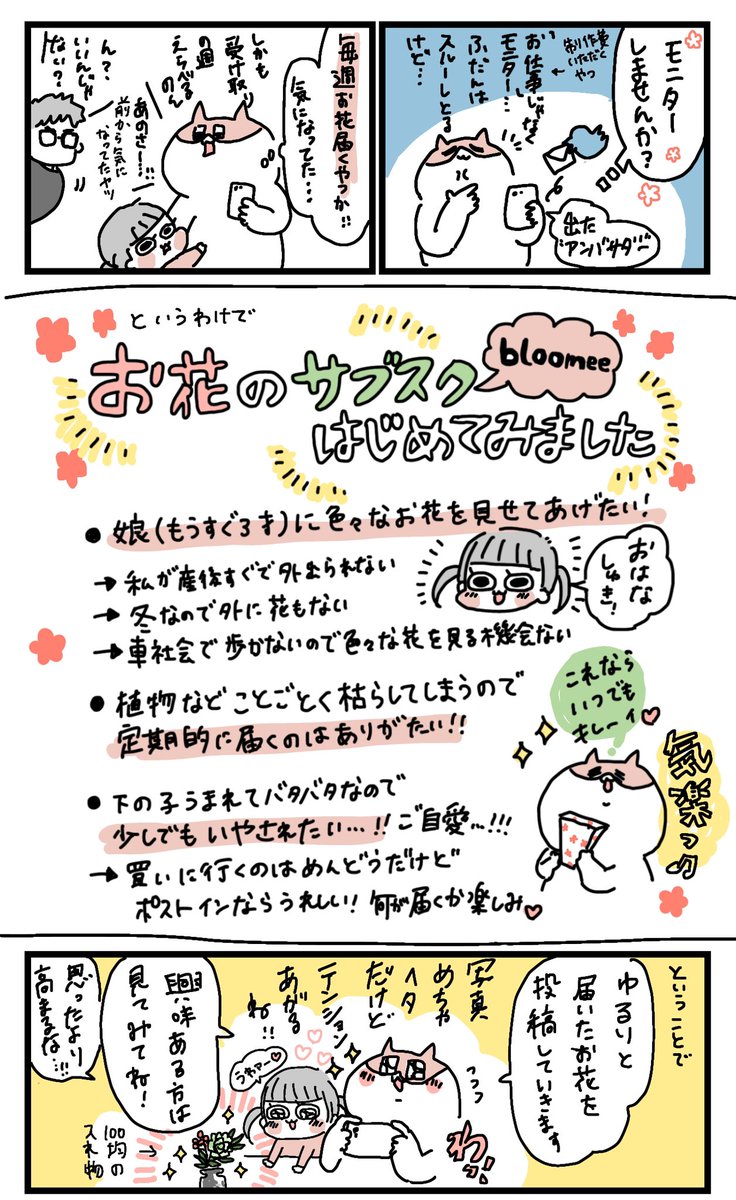 モニター
しませんか？
制作費
いただく
やつ
お仕事じゃなく
モニター…
ふだんは
スルーしとる
けど…
出た
アンバサダー
毎週お花届くやつか!!
気になってた…
しかも
受け取り
の週
えらべる
のん
あのさー…!!
前から気に
なってたヤツ
ん？
いいんじゃ
ない？
というわけで
お花のサブスク
bloomee
はじめてみました
● 娘(もうすぐ3才)に色々なお花を見せてあげたい！
→ 私が産後すぐで外出られない
→ 冬なので外に花もない
→ 車社会で歩かないので色々な花を見る機会ない
おはな
しゅき！
● 植物など ことごとく枯らしてしまうので
定期的に届くのはありがたい!!
これなら
いつでも
キレーイ
気楽っ
● 下の子うまれてバタバタなので
少しでも いやされたい…!! ご自愛…!!!
→ 買いに行くのはめんどうだけど
ポストインならうれしい！ 何が届くか楽しみ
ということで
ゆるりと
届いたお花を
投稿していきます
写真
めちゃ
ヘタ
だけど
テンション
あがる
ね!!
わっ
うわァー
興味ある方は
見てみてね！
思ったより
高まるな…!!!
100均の
入れ物